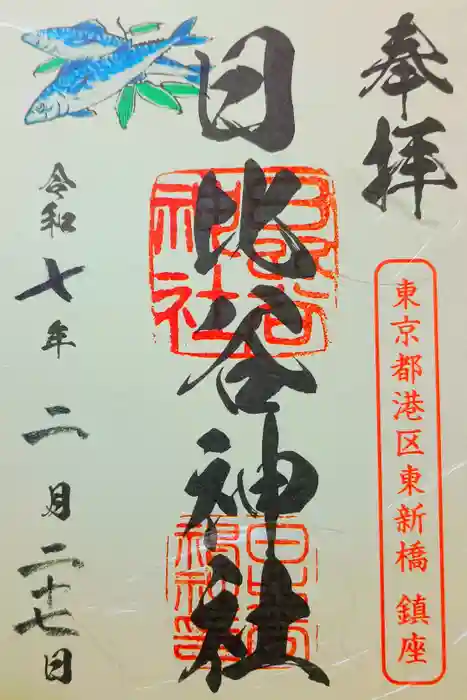 奉拝
東京都港区東新橋 鎮座
日比谷神社
日比谷神社
令和七年二月二十七日